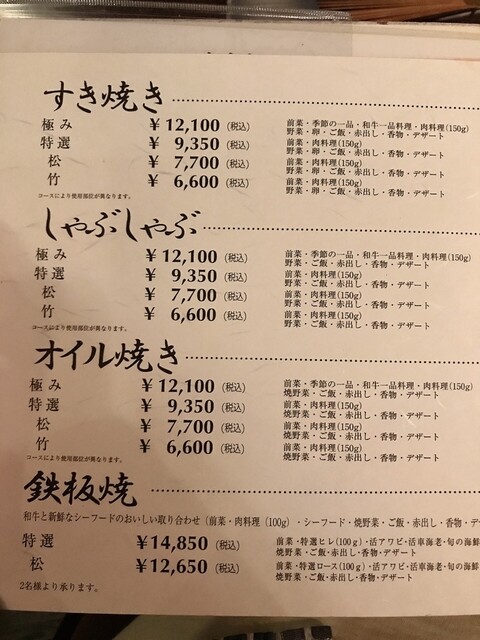 すき焼き
極み ￥12,100 (税込) 前菜・季節の一品・和牛一品料理・肉料理(150g)
野菜・卵・ご飯・赤出し・香物・デザート
特選 ￥ 9,350 (税込) 前菜・肉料理(150g)
野菜・卵・ご飯・赤出し・香物・デザート
松 ￥ 7,700 (税込) 前菜・肉料理(150g)
野菜・卵・ご飯・赤出し・香物・デザート
竹 ￥ 6,600 (税込) 前菜・肉料理(150g)
野菜・卵・ご飯・赤出し・香物・デザート
コースにより使用部位が異なります。
しゃぶしゃぶ
極み ￥12,100 (税込) 前菜・季節の一品・和牛一品料理・肉料理(150g)
野菜・ご飯・赤出し・香物・デザート
特選 ￥ 9,350 (税込) 前菜・肉料理(150g)
野菜・ご飯・赤出し・香物・デザート
松 ￥ 7,700 (税込) 前菜・肉料理(150g)
野菜・ご飯・赤出し・香物・デザート
竹 ￥ 6,600 (税込) 前菜・肉料理(150g)
野菜・ご飯・赤出し・香物・デザート
コースにより使用部位が異なります。
オイル焼き
極み ￥12,100 (税込) 前菜・季節の一品・和牛一品料理・肉料理(150g)
焼野菜・ご飯・赤出し・香物・デザート
特選 ￥ 9,350 (税込) 前菜・肉料理(150g)
焼野菜・ご飯・赤出し・香物・デザート
松 ￥ 7,700 (税込) 前菜・肉料理(150g)
焼野菜・ご飯・赤出し・香物・デザート
竹 ￥ 6,600 (税込) 前菜・肉料理(150g)
焼野菜・ご飯・赤出し・香物・デザート
コースにより使用部位が異なります。
鉄板焼
和牛と新鮮なシーフードのおいしい取り合わせ (前菜・肉料理 (100g) ・シーフード・焼野菜・ご飯・赤出し・香物・デ
特選 ￥14,850 (税込) 前菜・特選ヒレ(100g)・活アワビ・活車海老・旬の海鮮
焼野菜・ご飯・赤出し・香物・デザート
松 ￥12,650 (税込) 前菜・特選ロース(100g)・活アワビ・活車海老・旬の海
焼野菜・ご飯・赤出し・香物・デザート
2名様より承ります。